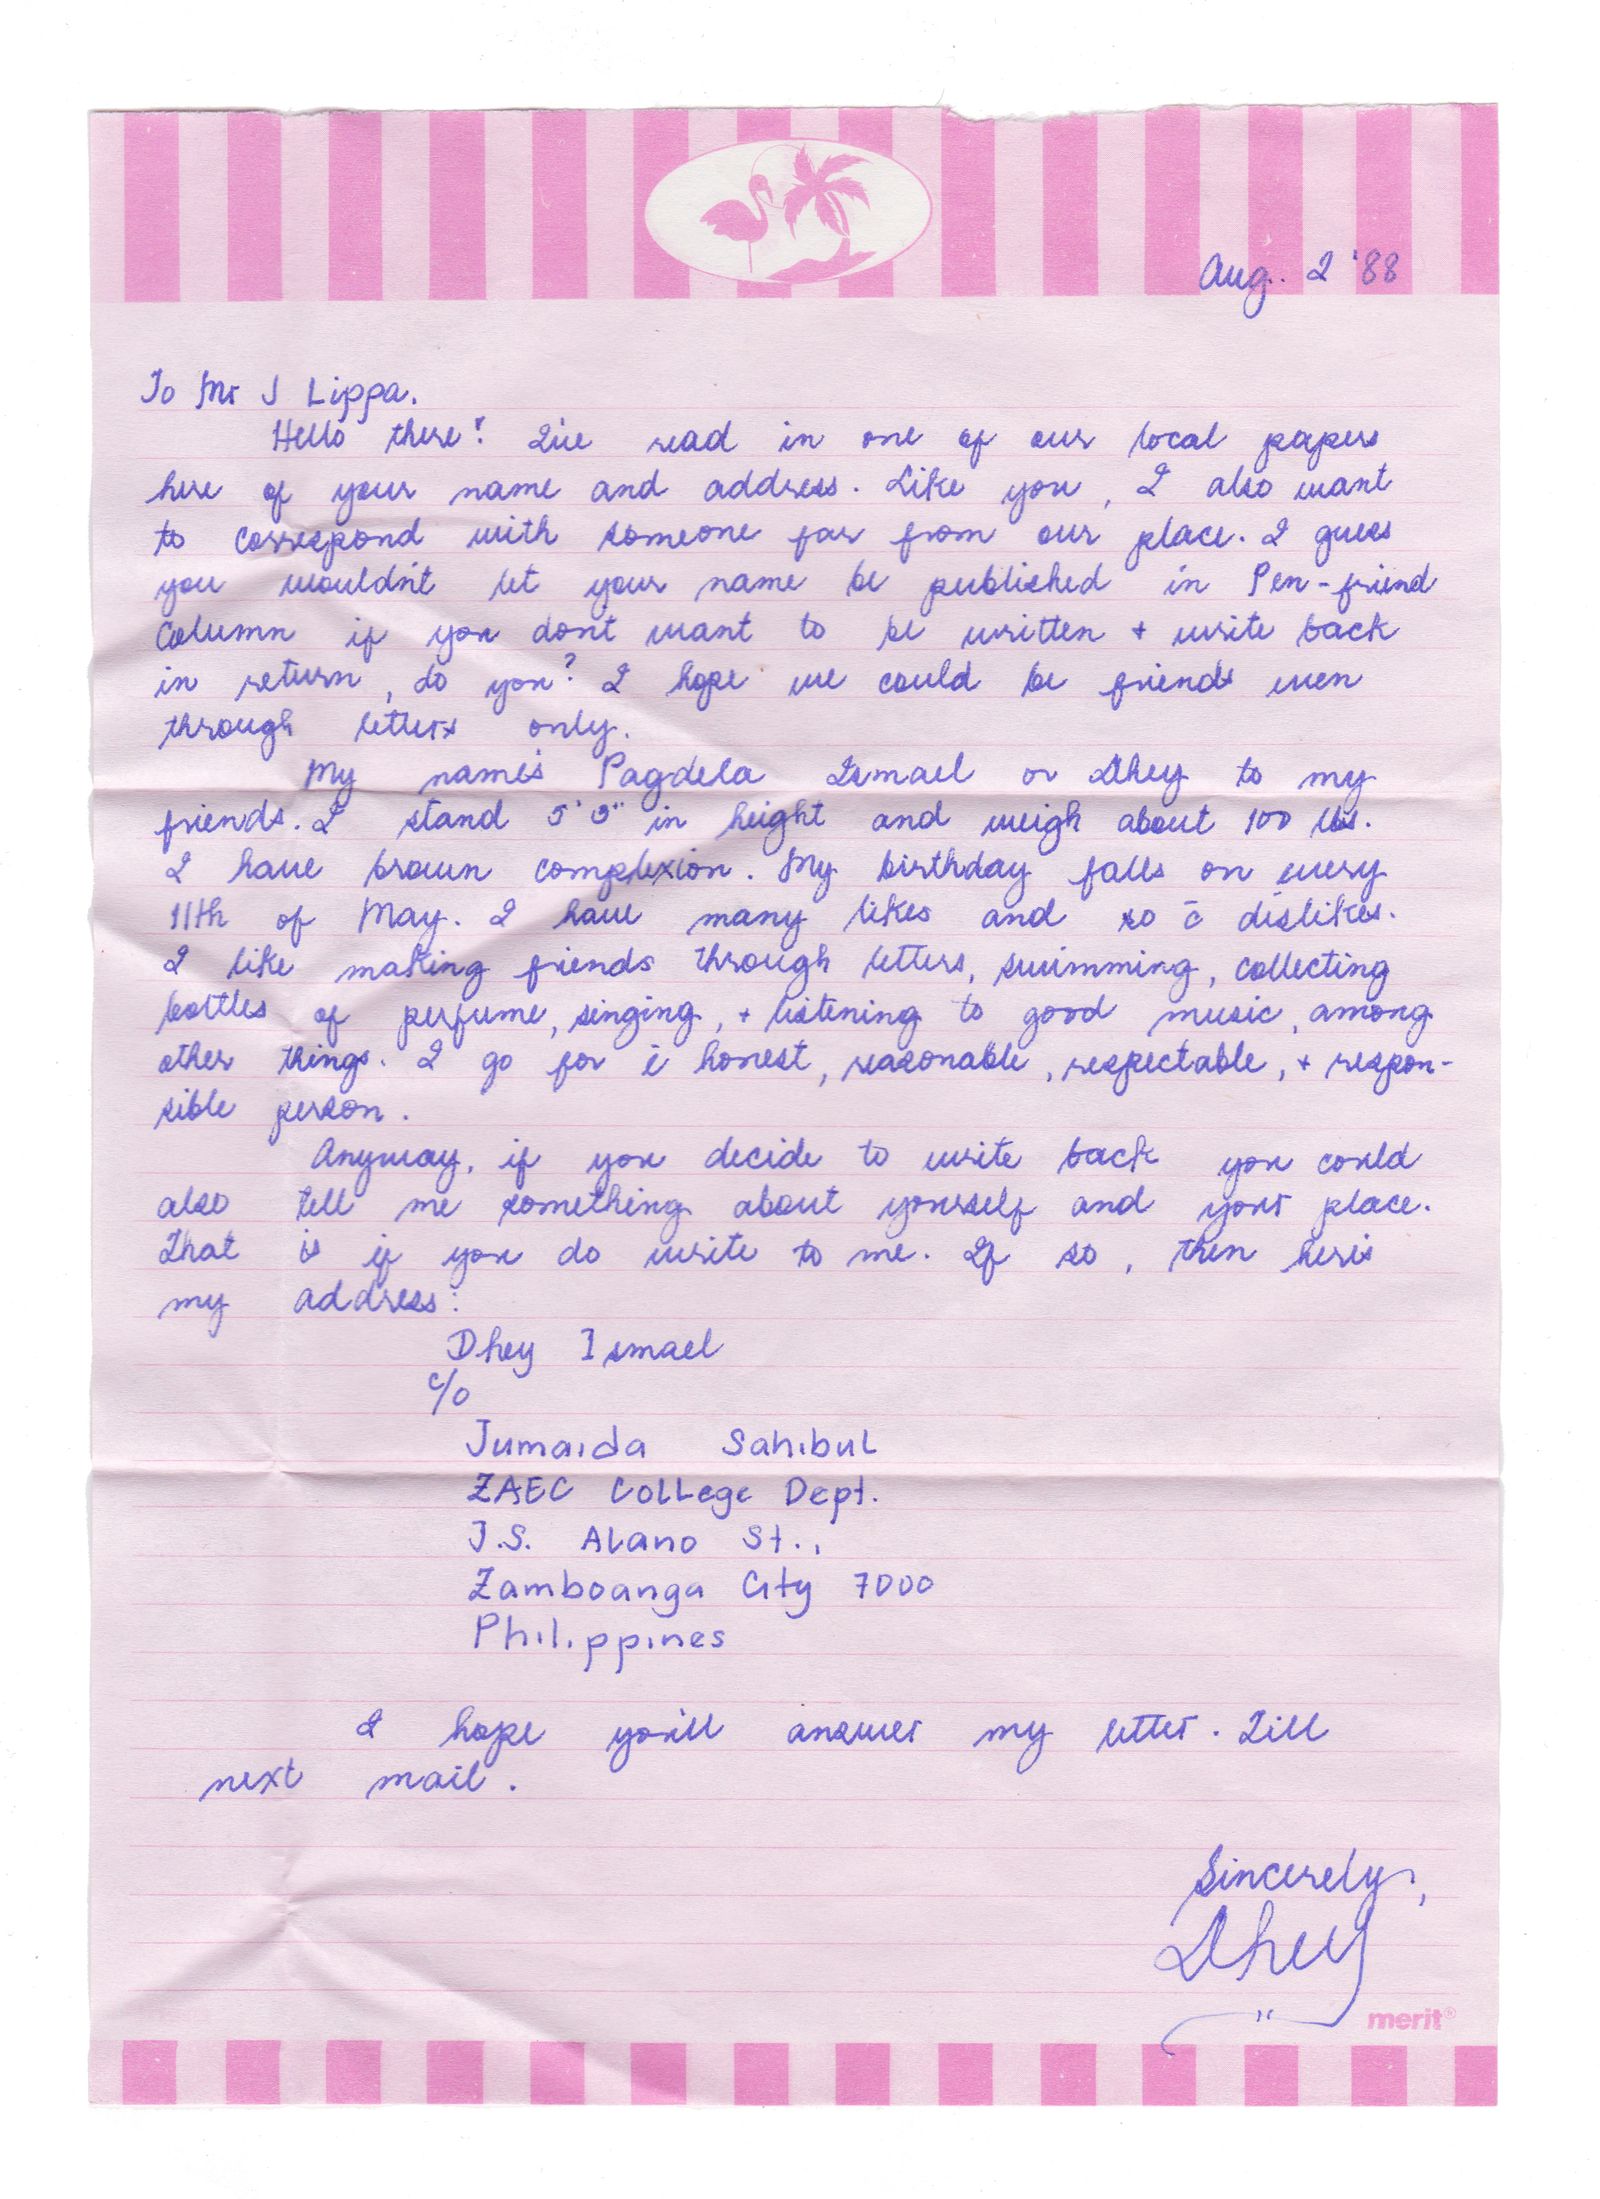 Aug. 2 '88
To Mr J Lippa.
Hello there! I've read in one of our local papers
here of your name and address. Like you, I also want
to correspond with someone far from our place. I guess
you wouldn't let your name be published in Pen-friend
Column if you don't want to be written + write back
in return, do you? I hope we could be friends even
through letters only.
My name's Pagdela Ismael or Dhey to my
friends. I stand 5' 3" in height and weigh about 100 lbs.
I have brown complexion. My birthday falls on every
11th of May. I have many likes and so c̄ dislikes.
I like making friends through letters, swimming, collecting
bottles of perfume, singing, + listening to good music, among
other things. I go for c̄ honest, reasonable, respectable, + respon-
sible person.
Anyway, if you decide to write back you could
also tell me something about yourself and your place.
That is if you do write to me. If so, then here's
my address:
Dhey Ismael
c/o
Jumaida Sahibul
ZAEC College Dept.
J.S. Alano St.,
Zamboanga City 7000
Philippines
I hope you'll answer my letter. Till
next mail.
Sincerely,
Dhey
merit®